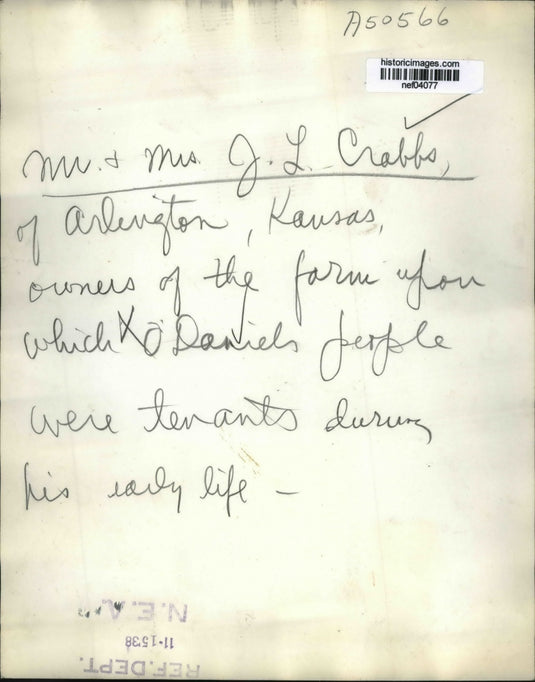 A50566
historicimages.com
nef04077
Mr. & Mrs. J. L. Crabbs,
of Arlington, Kansas,
owners of the farm upon
which X O'Daniels people
were tenants during
his early life –
N.E.A.
11-15-38
REF. DEPT.